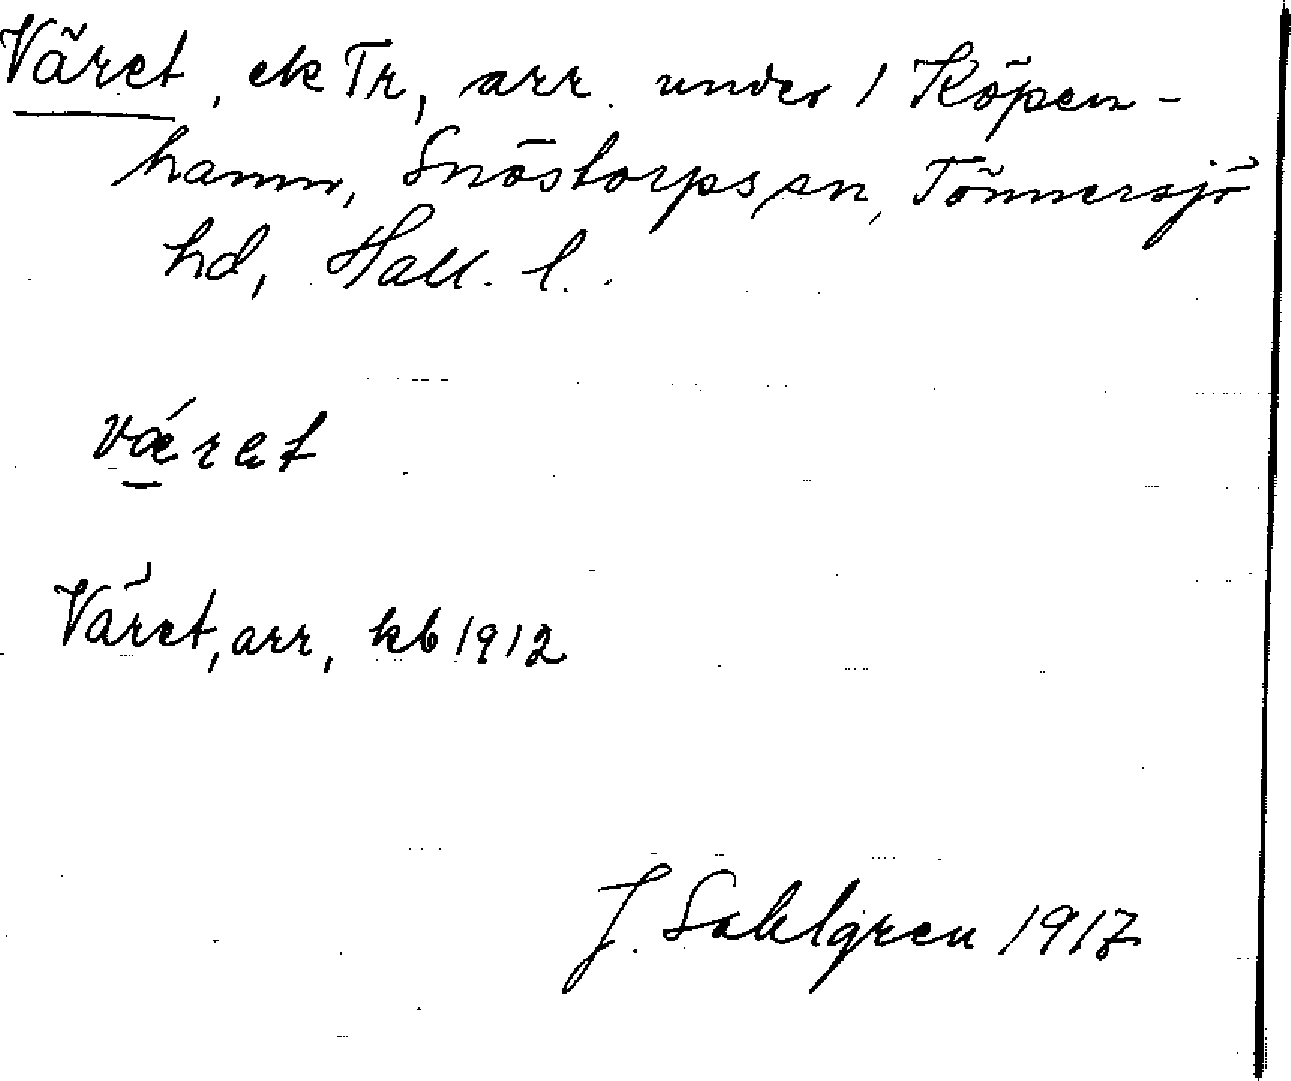 Väret, ek Tr, arr. under 1 Köpen-
hamn, Snöstorps sn, Tönnersjö
hd, Hall. l.
vǽret
Väret, arr, kb 1912
J. Sahlgren 1917